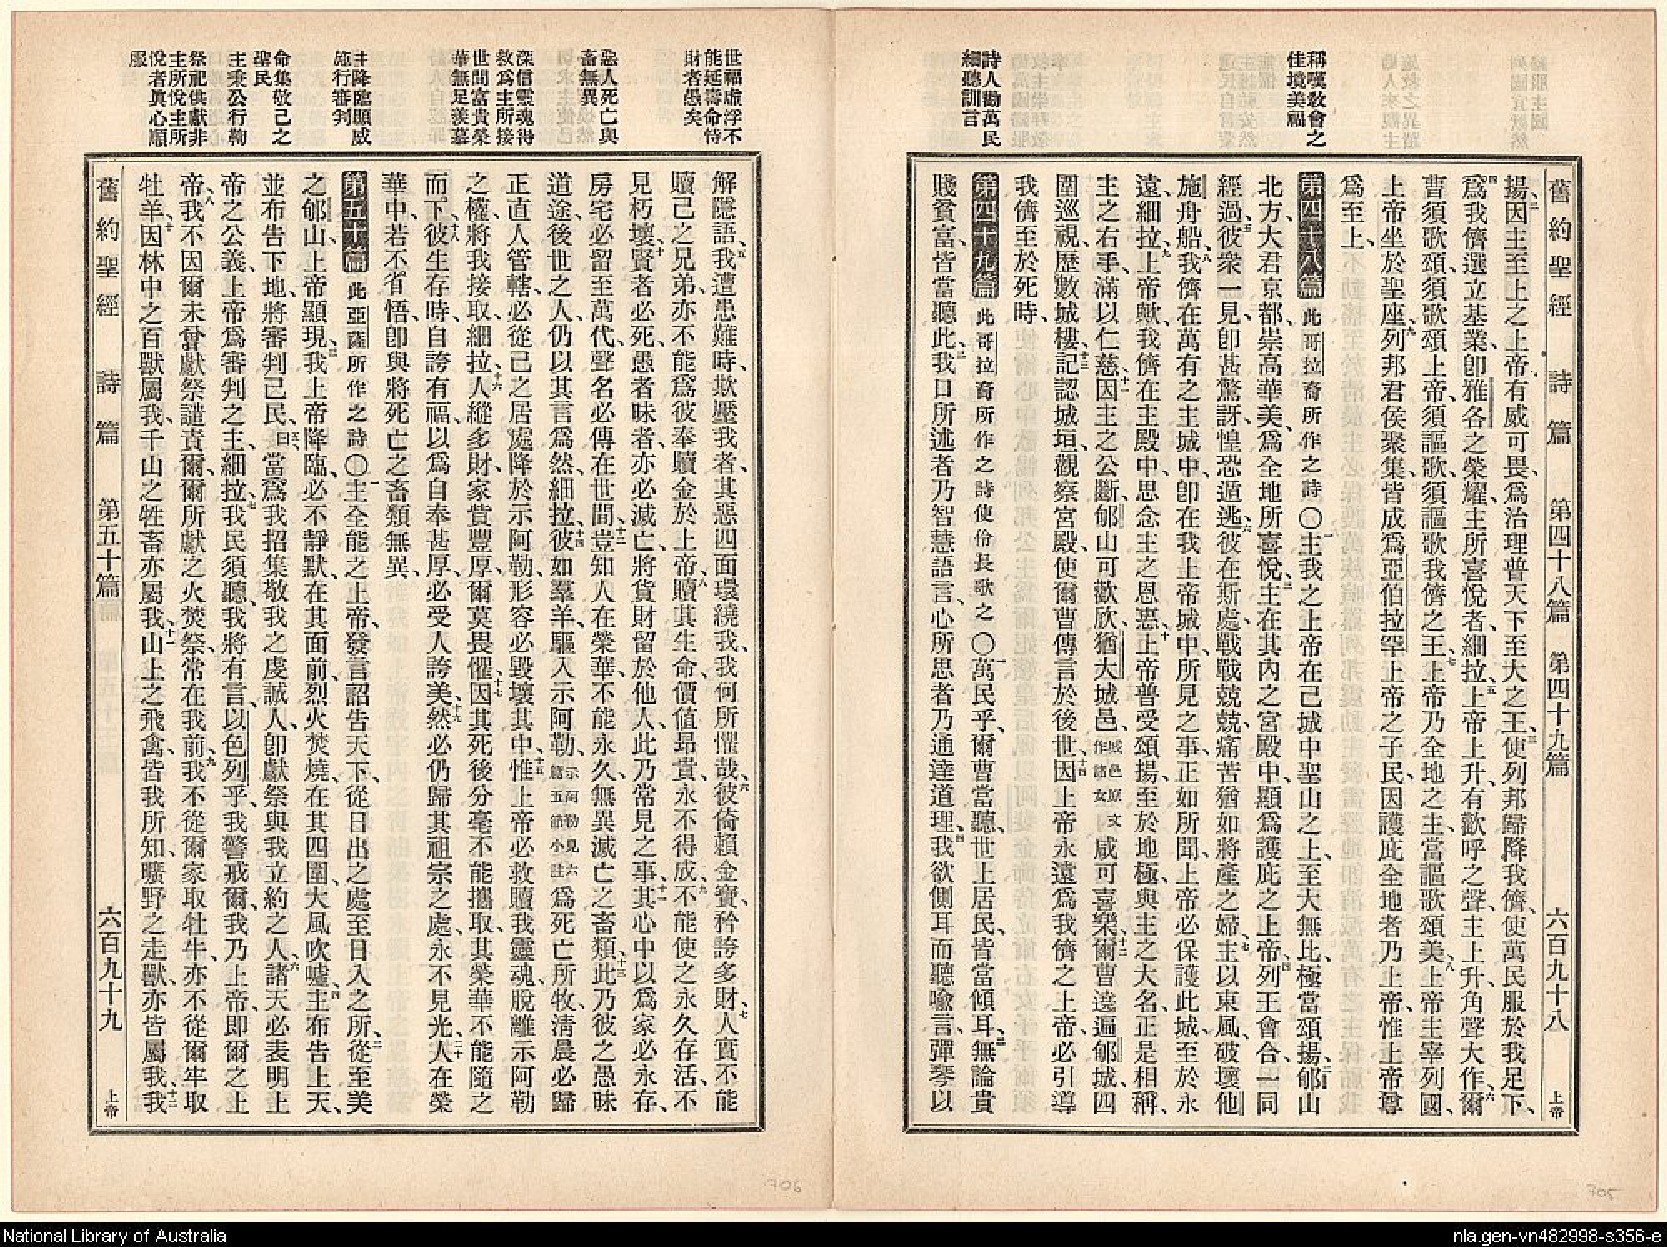 舊約聖經 詩篇 第四十八篇 第四十九篇 六百九十八 上帝
稱嘆教會之
佳境美福
詩人勸萬民
細聽訓言
揚、因主至上之上帝有威可畏、爲治理普天下至大之王、使列邦歸降我儕、使萬民服於我足下、
爲我儕選立基業、卽雅各之榮耀、主所喜悅者、細拉、上帝上升、有歡呼之聲、主上升、角聲大作、爾
曹須歌頌、須歌頌上帝、須謳歌、須謳歌我儕之王、上帝乃全地之主、當謳歌頌美、上帝主宰列國、
上帝坐於聖座、列邦君侯聚集、皆成爲亞伯拉罕上帝之子民、因護庇全地者乃上帝、惟上帝尊
爲至上、
第四十八篇 此哥拉裔所作之詩〇主我之上帝在己城中聖山之上、至大無比、極當頌揚、郇山
北方大君京都、崇高華美、爲全地所喜悅、主在其內之宮殿中、顯爲護庇之上帝、列王會合、一同
經過、彼衆一見、卽甚驚訝、惶恐遁逃、彼在斯處、戰戰兢兢、痛苦猶如將產之婦、主以東風破壞他
施舟船、我儕在萬有之主城中、卽在我上帝城中、所見之事、正如所聞、上帝必保護此城、至於永
遠、細拉、上帝歟、我儕在主殿中、思念主之恩惠、上帝普受頌揚、至於地極、與主之大名正是相稱、
主之右手、滿以仁慈、因主之公斷、郇山可歡欣、猶大城邑城邑原文作諸女咸可喜樂、爾曹遶遍郇城、四
圍巡視、歷數城樓、記認城垣、觀察宮殿、使爾曹傳言於後世、因上帝永遠爲我儕之上帝、必引導
我儕至於死時、
第四十九篇 此哥拉裔所作之詩使伶長歌之〇萬民乎、爾曹當聽、世上居民、皆當傾耳、無論貴
賤貧富、皆當聽此、我口所述者乃智慧語言、心所思者乃通達道理、我欲側耳而聽喩言、彈琴以
世福虛浮不
能延壽命恃
財者愚矣
惡人死亡與
畜無異
深信靈魂得
救爲主所接
世間富貴榮
華無足羨慕
主降臨顯威
施行審判
命集敬己之
聖民
主秉公行鞫
祭祀供獻非
主所悅主所
悅者眞心順
服
解隱語、我遭患難時、欺壓我者、其惡四面環繞我、我何所懼哉、彼倚賴金寶、矜誇多財、人實不能
贖己之兄弟、亦不能爲彼奉贖金於上帝、贖其生命、價值昂貴、永不得成、不能使之永久存活、不
見朽壞、賢者必死、愚者昧者、亦必滅亡、將貨財留於他人、此乃常見之事、其心中以爲家必永存、
房宅必留至萬代、聲名必傳在世間、豈知人在榮華、不能永久、無異滅亡之畜類、此乃彼之愚昧
道途、後世之人、仍以其言爲然、細拉、彼如羣羊、驅入示阿勒、示阿勒見六篇五節小註爲死亡所牧、清晨必歸
正直人管轄、必從己之居處、降於示阿勒、形容必毀壞其中、惟上帝必救贖我靈魂、脫離示阿勒
之權、將我接取、細拉、人縱多財、家貲豐厚、爾莫畏懼、因其死後分毫不能攜取、其榮華不能隨之
而下、彼生存時、自誇有福、以爲自奉甚厚、必受人誇美、然必仍歸其祖宗之處、永不見光、人在榮
華中、若不省悟、卽與將死亡之畜類無異、
第五十篇 此亞薩所作之詩〇主全能之上帝、發言詔告天下、從日出之處至日入之所、從至美
之郇山、上帝顯現、我上帝降臨、必不靜默、在其面前、烈火焚燒、在其四圍、大風吹噓、主布告上天、
並布告下地、將審判己民、曰、當爲我招集敬我之虔誠人、卽獻祭與我立約之人、諸天必表明上
帝之公義、上帝爲審判之主、細拉、我民須聽、我將有言、以色列乎、我警戒爾、我乃上帝、卽爾之上
帝、我不因爾未嘗獻祭譴責爾、爾所獻之火焚祭、常在我前、我不從爾家取牡牛、亦不從爾牢取
牡羊、因林中之百獸屬我、千山之牲畜亦屬我、山上之飛禽、皆我所知、曠野之走獸、亦皆屬我、我
舊約聖經 詩篇 第五十篇 六百九十九 上帝
706
705
National Library of Australia
nla.gen-vn482998-s356-e